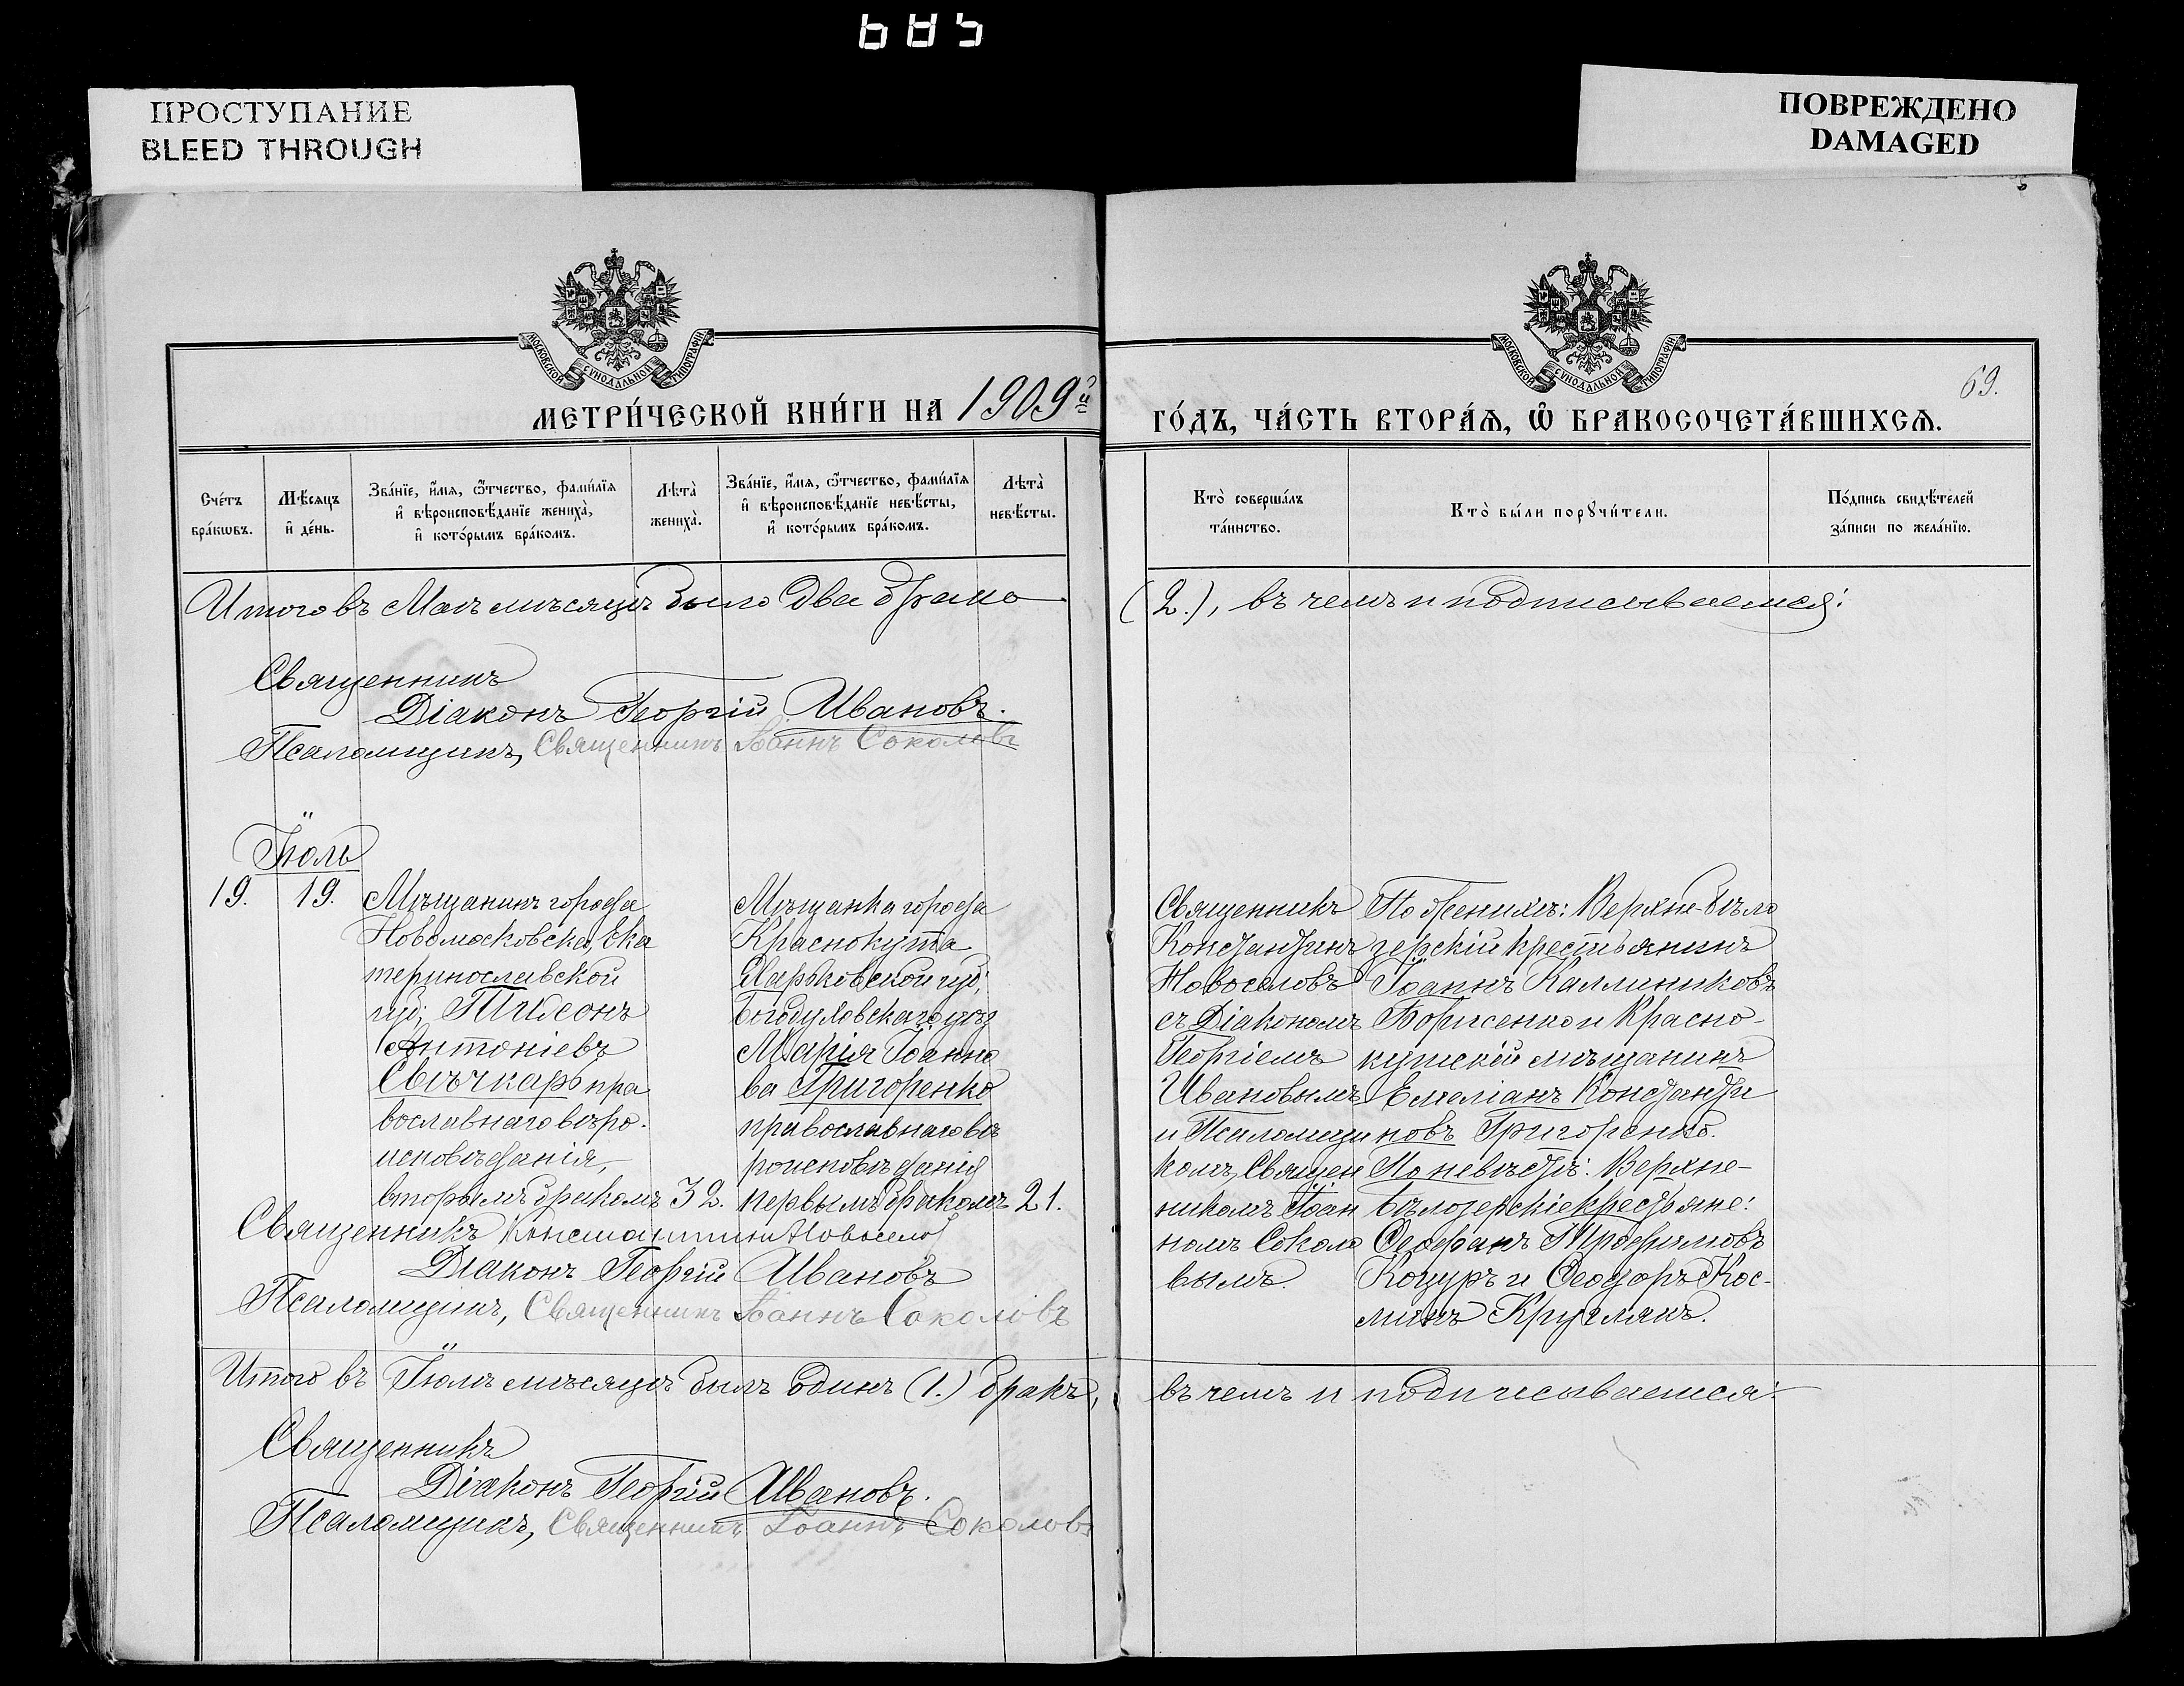 685
ПРОСТУПАНИЕ
BLEED THROUGH
ПОВРЕЖДЕНО
DAMAGED
МОСКОВСКОЙ СѴНОДАЛЬНОЙ ТИПОГРАФІИ
МОСКОВСКОЙ СѴНОДАЛЬНОЙ ТИПОГРАФІИ
69.
МЕТРИ́ЧЕСКОЙ КНИ́ГИ НА 1909й
ГО́ДЪ, ЧА́СТЬ ВТОРА́Ѧ, Ѡ БРАКОСОЧЕТА́ВШИХСѦ.
Сче́тъ бра́кѡвъ.
Мѣ́сяцъ и де́нь.
Зва́нїе, и́мѧ, ѻ҆́тчество, фамі́лїѧ и вѣроисповѣ́данїе жениха̀, и кото́рымъ бра́комъ.
Лѣта̀ жениха̀.
Зва́нїе, и́мѧ, ѻ҆́тчество, фамі́лїѧ и вѣроисповѣ́данїе невѣ́сты, и кото́рымъ бра́комъ.
Лѣта̀ невѣ́сты.
Кто̀ соверша́лъ та́инство.
Кто̀ бы́ли порꙋчи́тели.
По́дпись свидѣ́телей за́писи по жела́нїю.
Итого въ Маѣ мѣсяцѣ было два брака (2.), въ чемъ и подписываемся:
Священникъ
Діаконъ Георгій Ивановъ.
Псаломщикъ, Священникъ Іоаннъ Соколовъ
Іюль
19. 19.
Мѣщанинъ города
Новомосковска, Ека
теринославской
губ; Гидеонъ
Антоніевъ
Свѣчкарь пра
вославнаго вѣро-
исповѣданія,
вторымъ бракомъ 32.
Мѣщанка города
Краснокута
Харьковской губ;
Богодуховскаго уѣз
Марія Іоанно
ва Григоренко
православнаго вѣ
роисповѣданія
первымъ бракомъ 21.
Священникъ
Константинъ
Новоселовъ
съ Діакономъ
Георгіемъ
Ивановымъ
и Псаломщи
комъ, Священ
никомъ Іоан
номъ Соколо
вымъ.
По женихѣ: Верхне-бѣло
зерскій крестьянинъ
Іоаннъ Каллиниковъ
Борисенко и Красно-
кутскій мѣщанинъ
Емеліанъ Константи
новъ Григоренко.
По невѣстѣ: Верхне-
бѣлозерскіе крестьяне:
Ѳеофанъ Трофимовъ
Коцуръ и Ѳеодоръ Кос-
минъ Круглякъ.
Священникъ Константинъ Новоселовъ
Діаконъ Георгій Ивановъ
Псаломщикъ, Священникъ Іоаннъ Соколовъ
Итого въ Іюлѣ мѣсяцѣ былъ одинъ (1.) бракъ, въ чемъ и подписываемся:
Священникъ
Діаконъ Георгій Ивановъ.
Псаломщикъ, Священникъ Іоаннъ Соколовъ